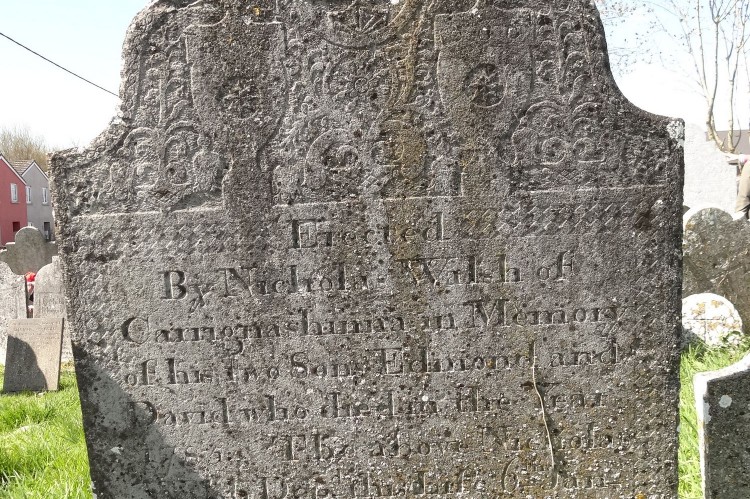 Erected
By Nicholas Walsh of
Carrignashinna in Memory
of his two Sons Edmond and
David who died in the Year
The above Nicholas
Dep.ᵈ this Life 6ᵗʰ Jan